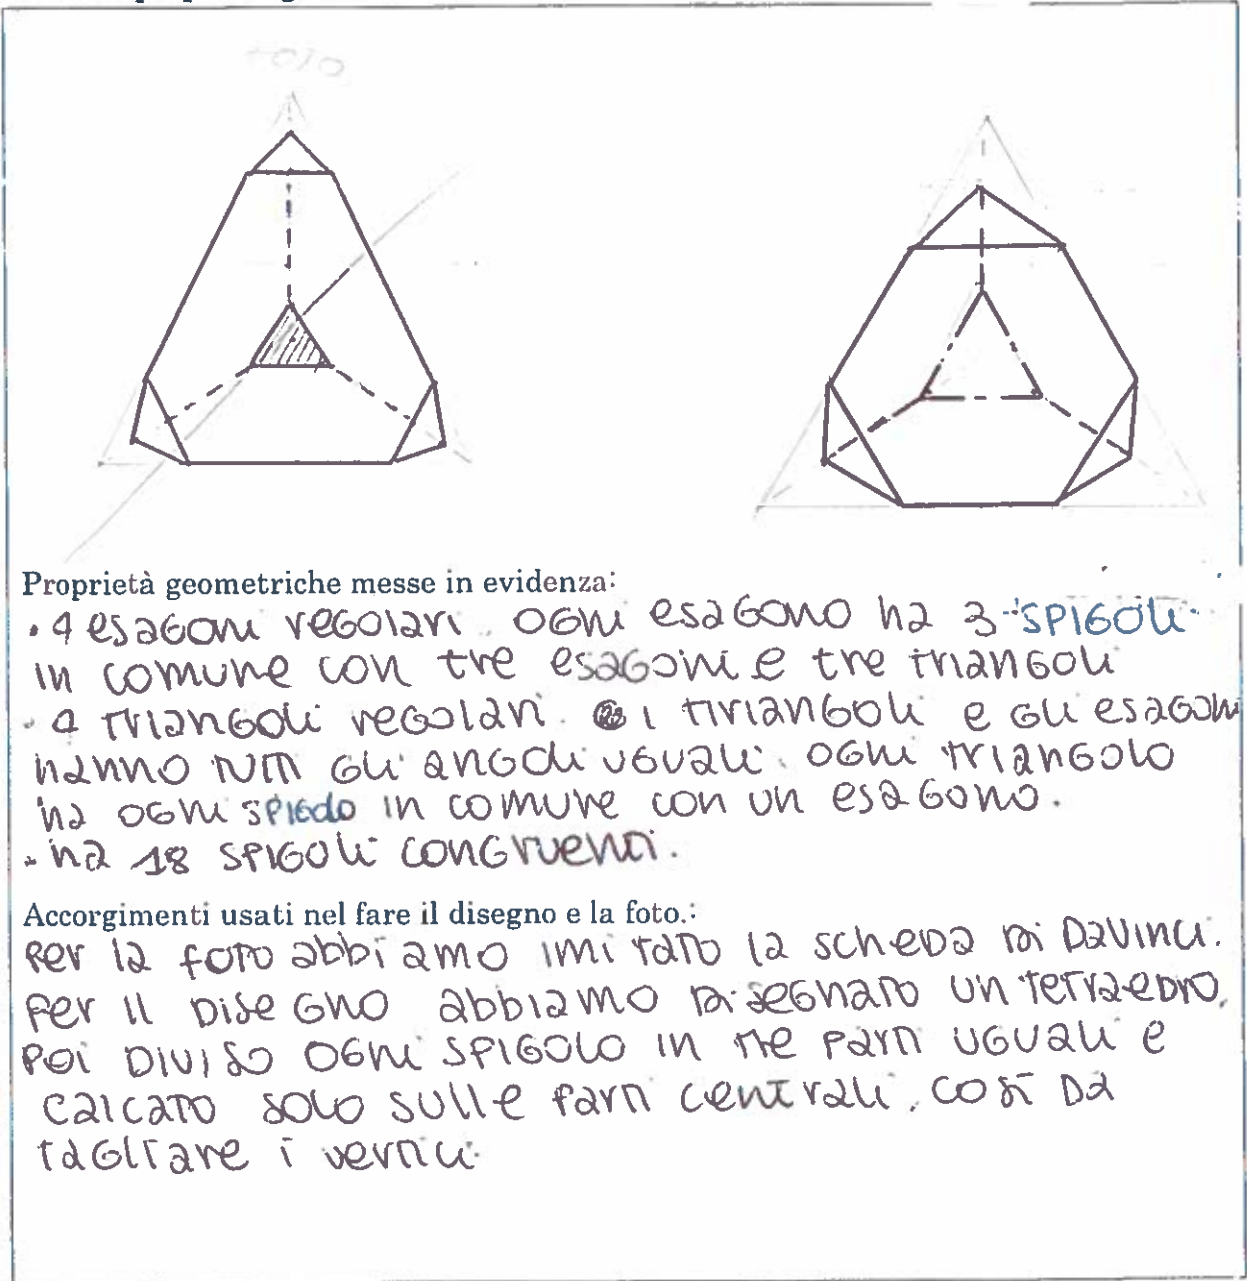 foto
Proprietà geometriche messe in evidenza:
• 4 esagoni regolari. ogni esagono ha 3 spigoli
in comune con tre esagoni e tre triangoli
• 4 triangoli regolari. i tiriangoli e gli esagoni
hanno tutti gli angoli uguali. ogni triangolo
ha ogni spigolo in comune con un esagono.
• ha 18 spigoli congruenti.
Accorgimenti usati nel fare il disegno e la foto.:
Per la foto abbiamo imitato la scheda di Davinci.
per il disegno abbiamo disegnato un tetraedro,
poi diviso ogni spigolo in tre parti uguali e
calcato solo sulle parti centrali, così da
tagliare i vertici.